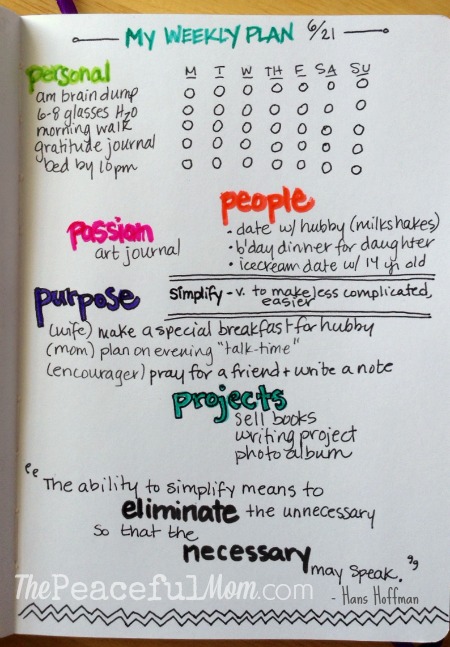 MY WEEKLY PLAN 6/21
personal M T W TH F SA SU
am brain dump
6-8 glasses H2O
morning walk
gratitude journal
bed by 10pm
people
• date w/ hubby (milkshakes)
• b'day dinner for daughter
• icecream date w/ 14 yr old
passion
art journal
simplify - v. to make less complicated,
easier
purpose
(wife) make a special breakfast for hubby
(mom) plan on evening "talk-time"
(encourager) pray for a friend + write a note
projects
sell books
writing project
photo album
"The ability to simplify means to
eliminate the unnecessary
so that the
necessary may speak."
- Hans Hoffman
ThePeacefulMom.com